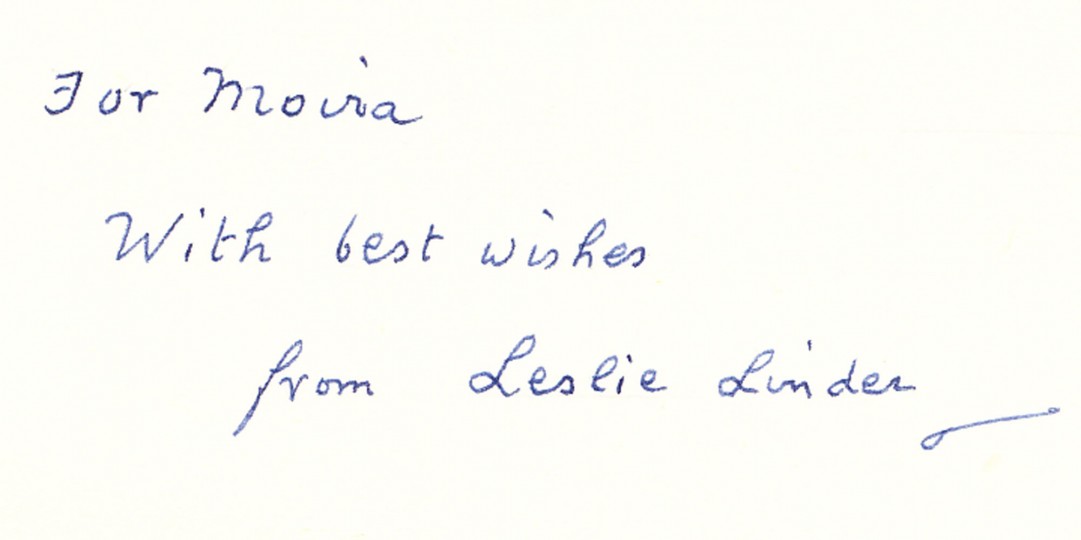 For Moira
With best wishes
from Leslie Linder